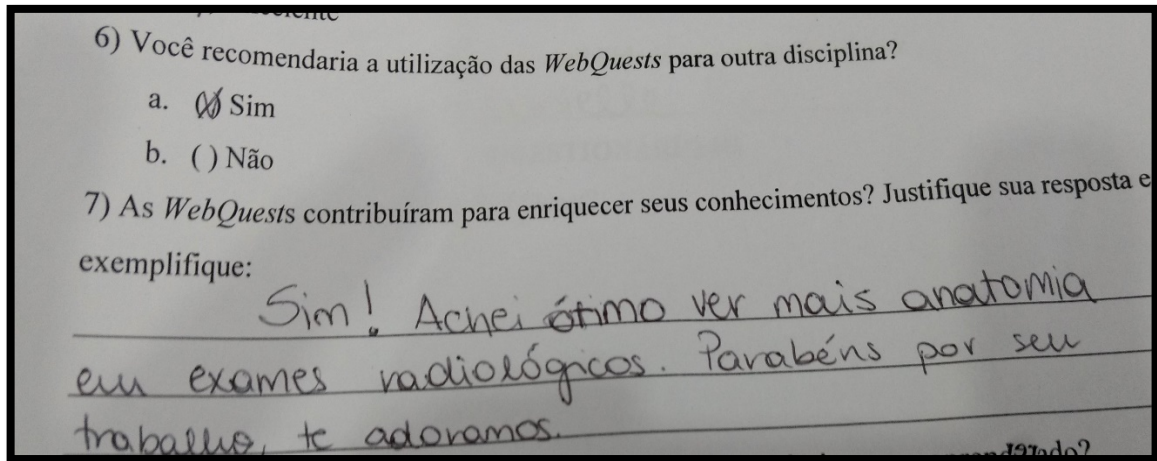 6) Você recomendaria a utilização das WebQuests para outra disciplina?
a. (X) Sim
b. ( ) Não
7) As WebQuests contribuíram para enriquecer seus conhecimentos? Justifique sua resposta e
exemplifique:
Sim! Achei ótimo ver mais anatomia
em exames radiológicos. Parabéns por seu
trabalho, te adoramos.